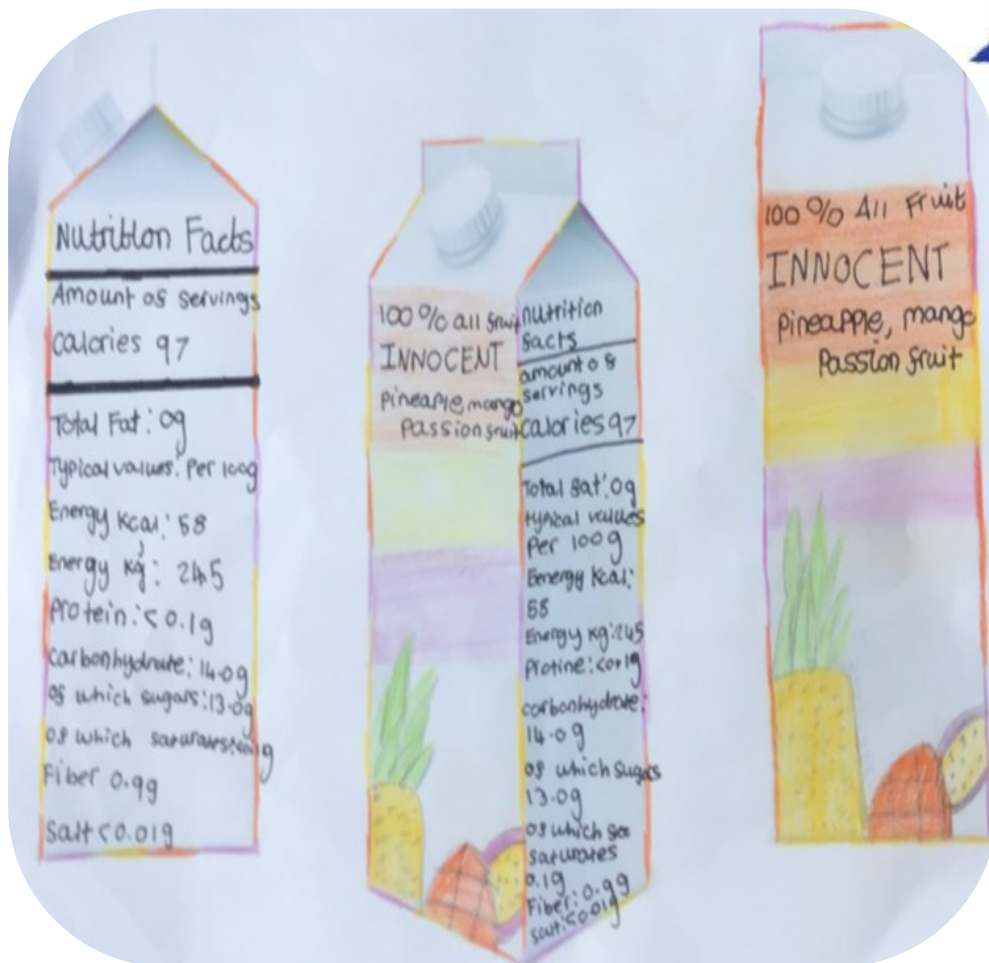 Nutrition Facts
Amount of servings
Calories 97
Total Fat: 0g
Typical values: Per 100g
Energy Kcal: 58
Energy kj: 245
Protein: <0.1g
carbonhydrate: 14.0g
of which sugars: 13.0g
of which saturates
Fiber 0.9g
Salt <0.01g
100% all fruit
INNOCENT
pineaple, mango
Passion fruit
nutrition
facts
amount of
servings
calories 97
Total fat: 0g
typical values
Per 100g
Eenergy Kcal:
58
Energy kg: 245
Protine:
carbonhydrate:
14.0g
of which sugars
13.0g
of which sa
saturates
0.1g
Fiber: 0.9g
salt: <0.01g
100% All Fruit
INNOCENT
pineapple, mango
Passion fruit